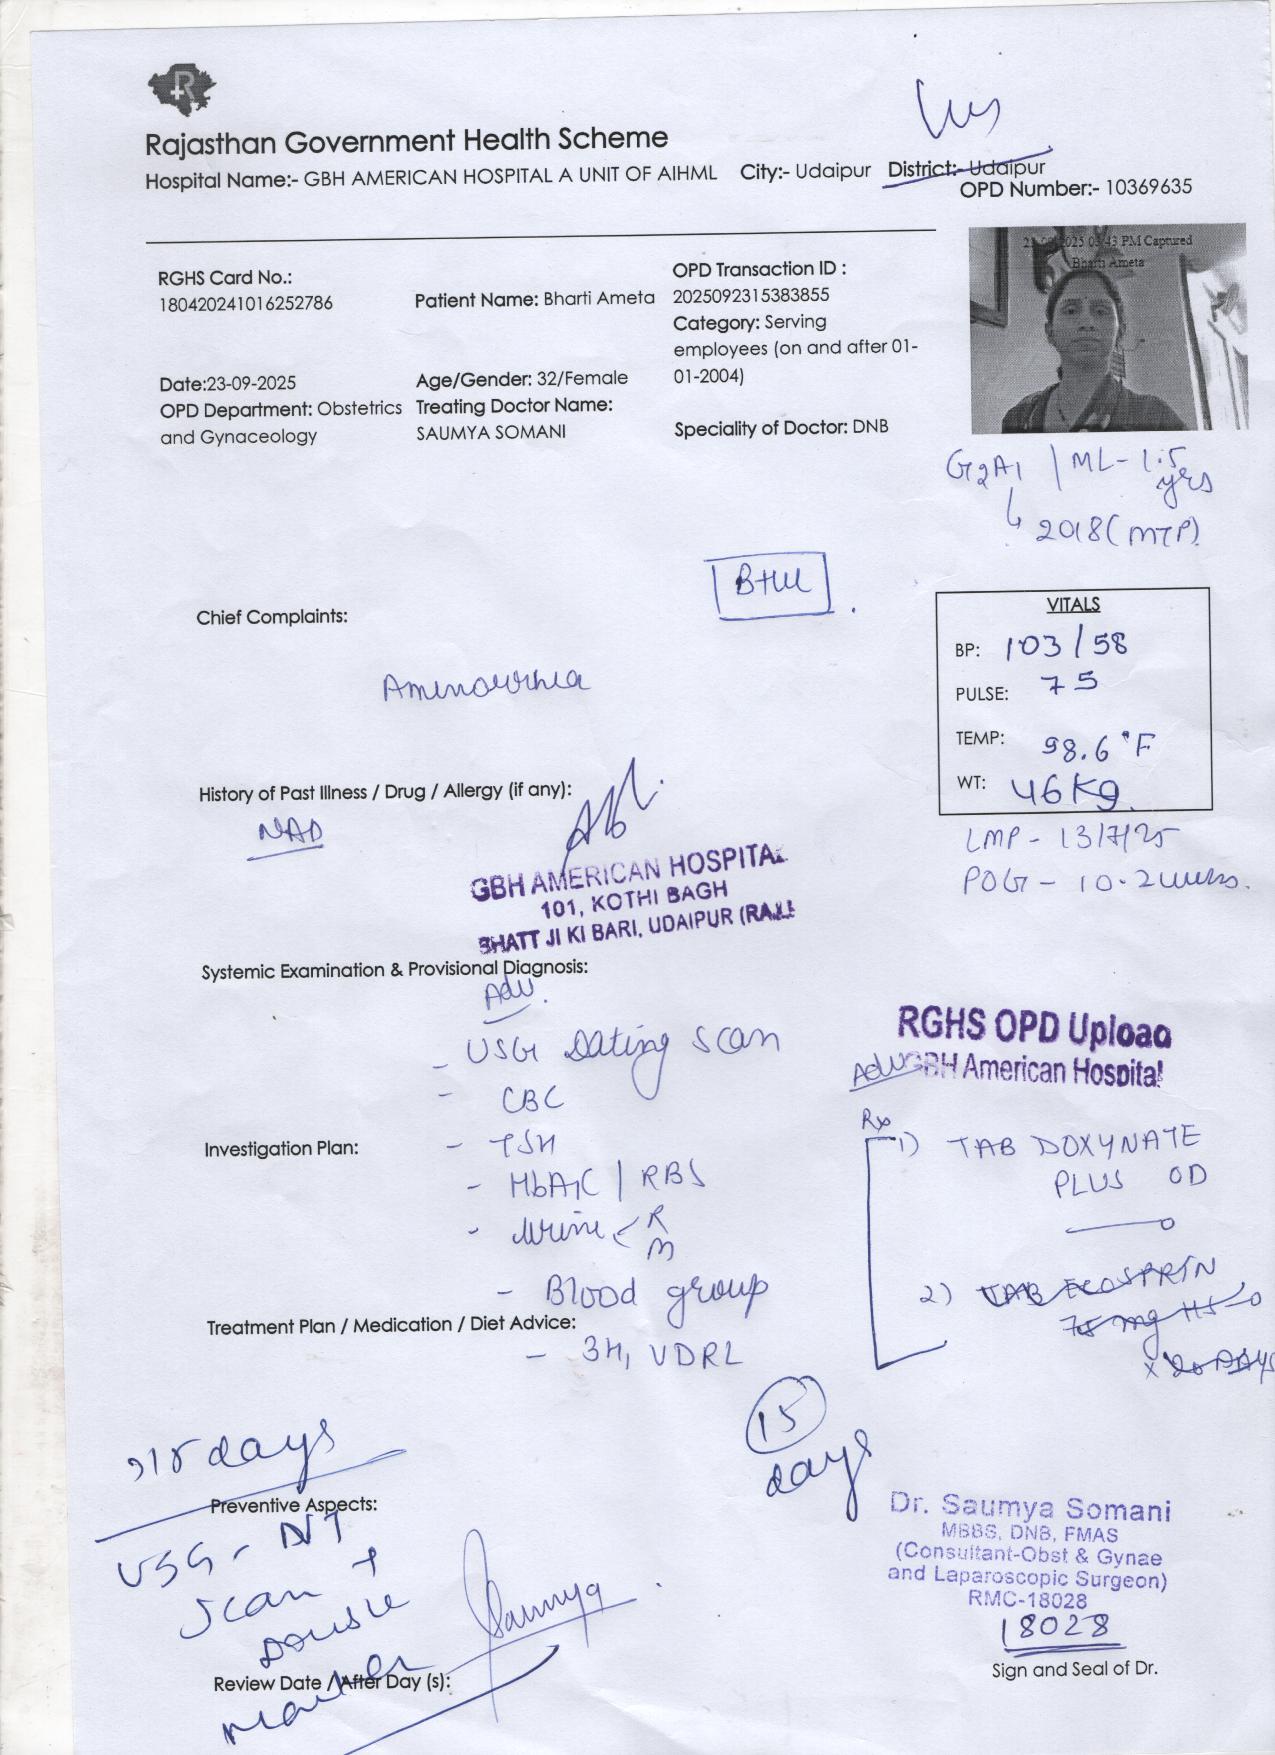 Rajasthan Government Health Scheme
Hospital Name:- GBH AMERICAN HOSPITAL A UNIT OF AIHML City:- Udaipur District:- Udaipur
OPD Number:- 10369635
RGHS Card No.:
180420241016252786
Patient Name: Bharti Ameta
OPD Transaction ID :
2025092315383855
Category: Serving
employees (on and after 01-
01-2004)
Date:23-09-2025
OPD Department: Obstetrics
and Gynaceology
Age/Gender: 32/Female
Treating Doctor Name:
SAUMYA SOMANI
Speciality of Doctor: DNB
2025 03:43 PM Captured
Bharti Ameta
G2A1 | ML- 1.5
yrs
2018 (MTP)
Chief Complaints:
Amenorrhea
VITALS
BP: 103/58
PULSE: 75
TEMP: 98.6°F
WT: 46Kg
LMP - 13/7/25
POG - 10.2 weeks.
History of Past Illness / Drug / Allergy (if any):
NAD
GBH AMERICAN HOSPITAL
101, KOTHI BAGH
BHATT JI KI BARI, UDAIPUR (RAJ.)
Systemic Examination & Provisional Diagnosis:
Adv.
- USG Dating Scan
- CBC
Investigation Plan:
- TSH
- HbA1C | RBS
- Urine < R
M
- Blood group
Treatment Plan / Medication / Diet Advice:
- 3H, VDRL
RGHS OPD Upload
GBH American Hospital
Adv
Rx
1) TAB DOXYNATE
PLUS OD
2) TAB ECOSPRIN
75 mg HS
x 20 DAYS
15
days
days
Preventive Aspects:
USG - NT
Scan +
Double
marker
Saumya
Review Date / After Day (s):
Dr. Saumya Somani
MBBS, DNB, FMAS
(Consultant-Obst & Gynae
and Laparoscopic Surgeon)
RMC-18028
18028
Sign and Seal of Dr.